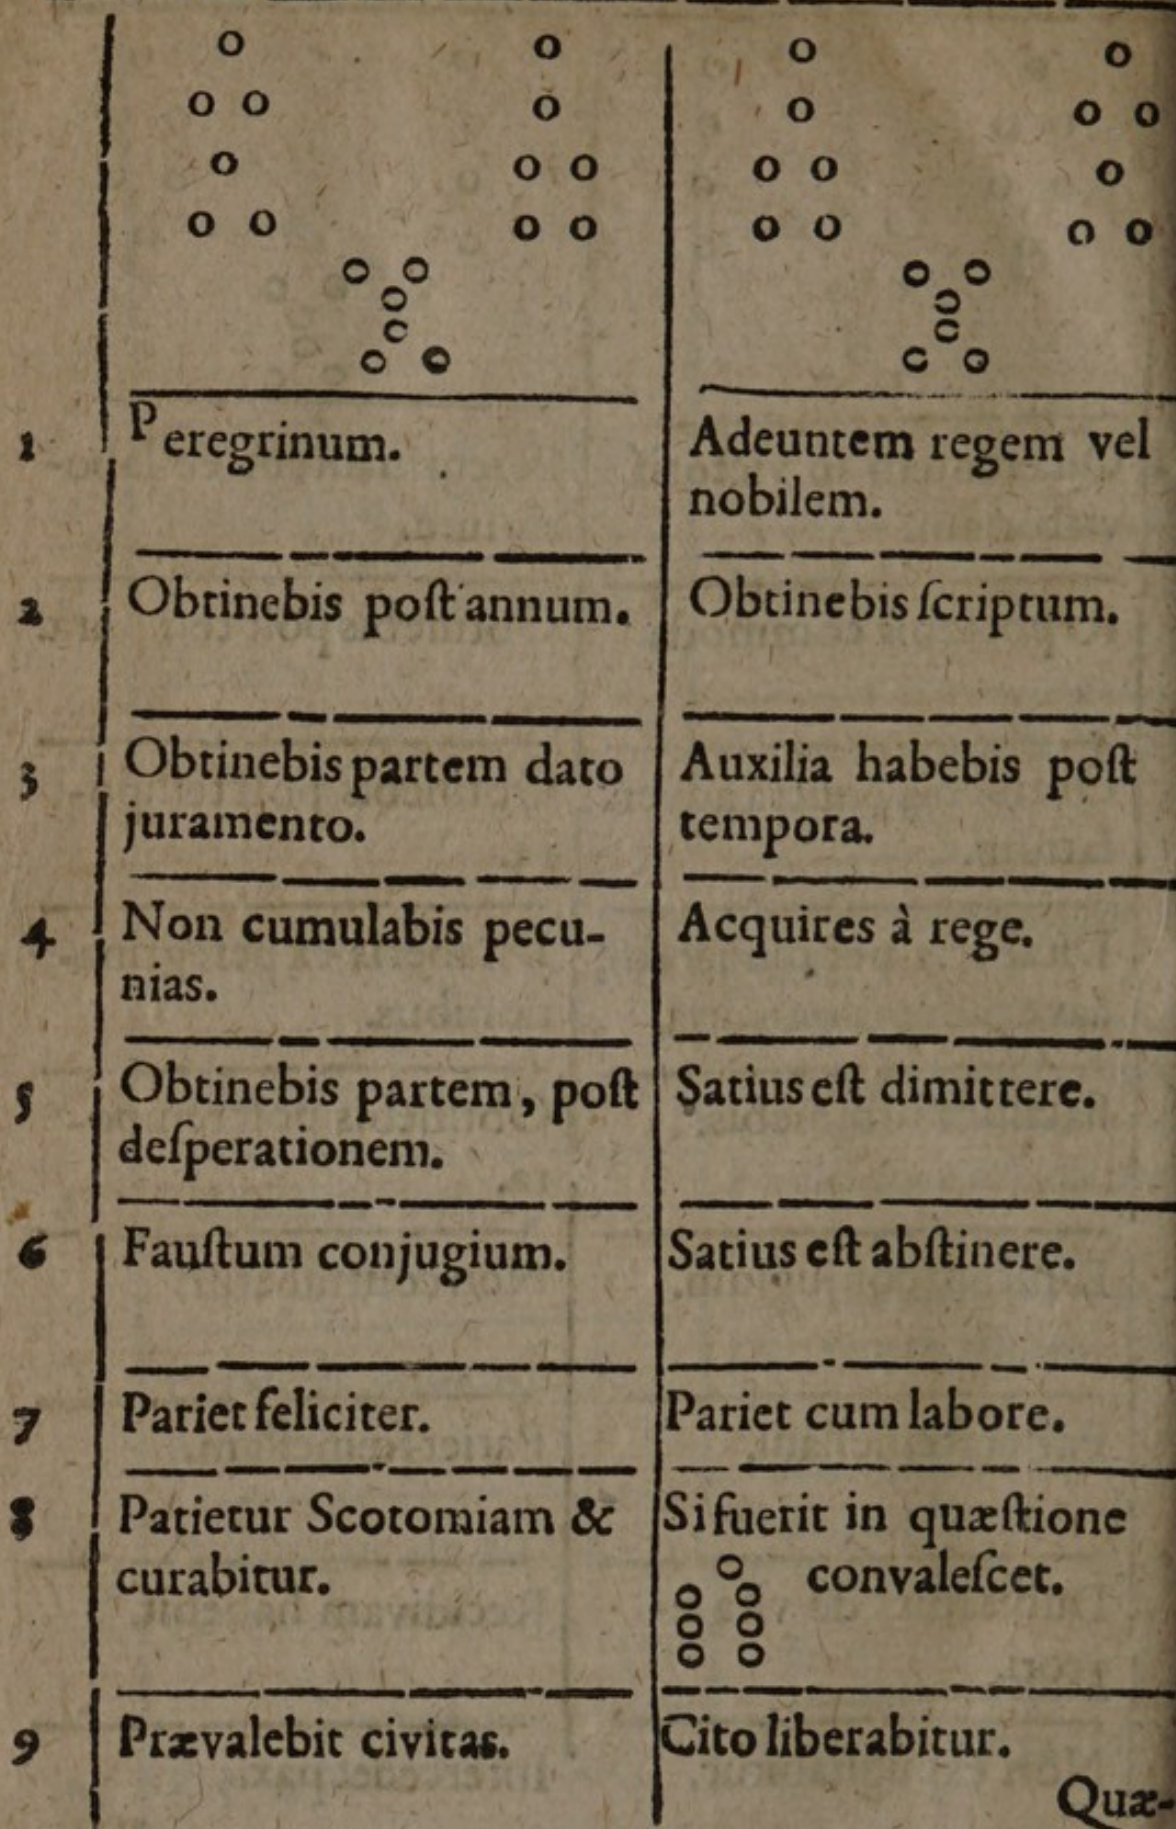 1 Peregrinum.
Adeuntem regem vel
nobilem.
2 Obtinebis poſt annum.
Obtinebis ſcriptum.
3 Obtinebis partem dato
juramento.
Auxilia habebis poſt
tempora.
4 Non cumulabis pecu-
nias.
Acquires à rege.
5 Obtinebis partem, poſt
deſperationem.
Satius eſt dimittere.
6 Fauſtum conjugium.
Satius eſt abſtinere.
7 Pariet feliciter.
Pariet cum labore.
8 Patietur Scotomiam &
curabitur.
Si fuerit in quæſtione
convaleſcet.
9 Prævalebit civitas.
Cito liberabitur.
Quæ-